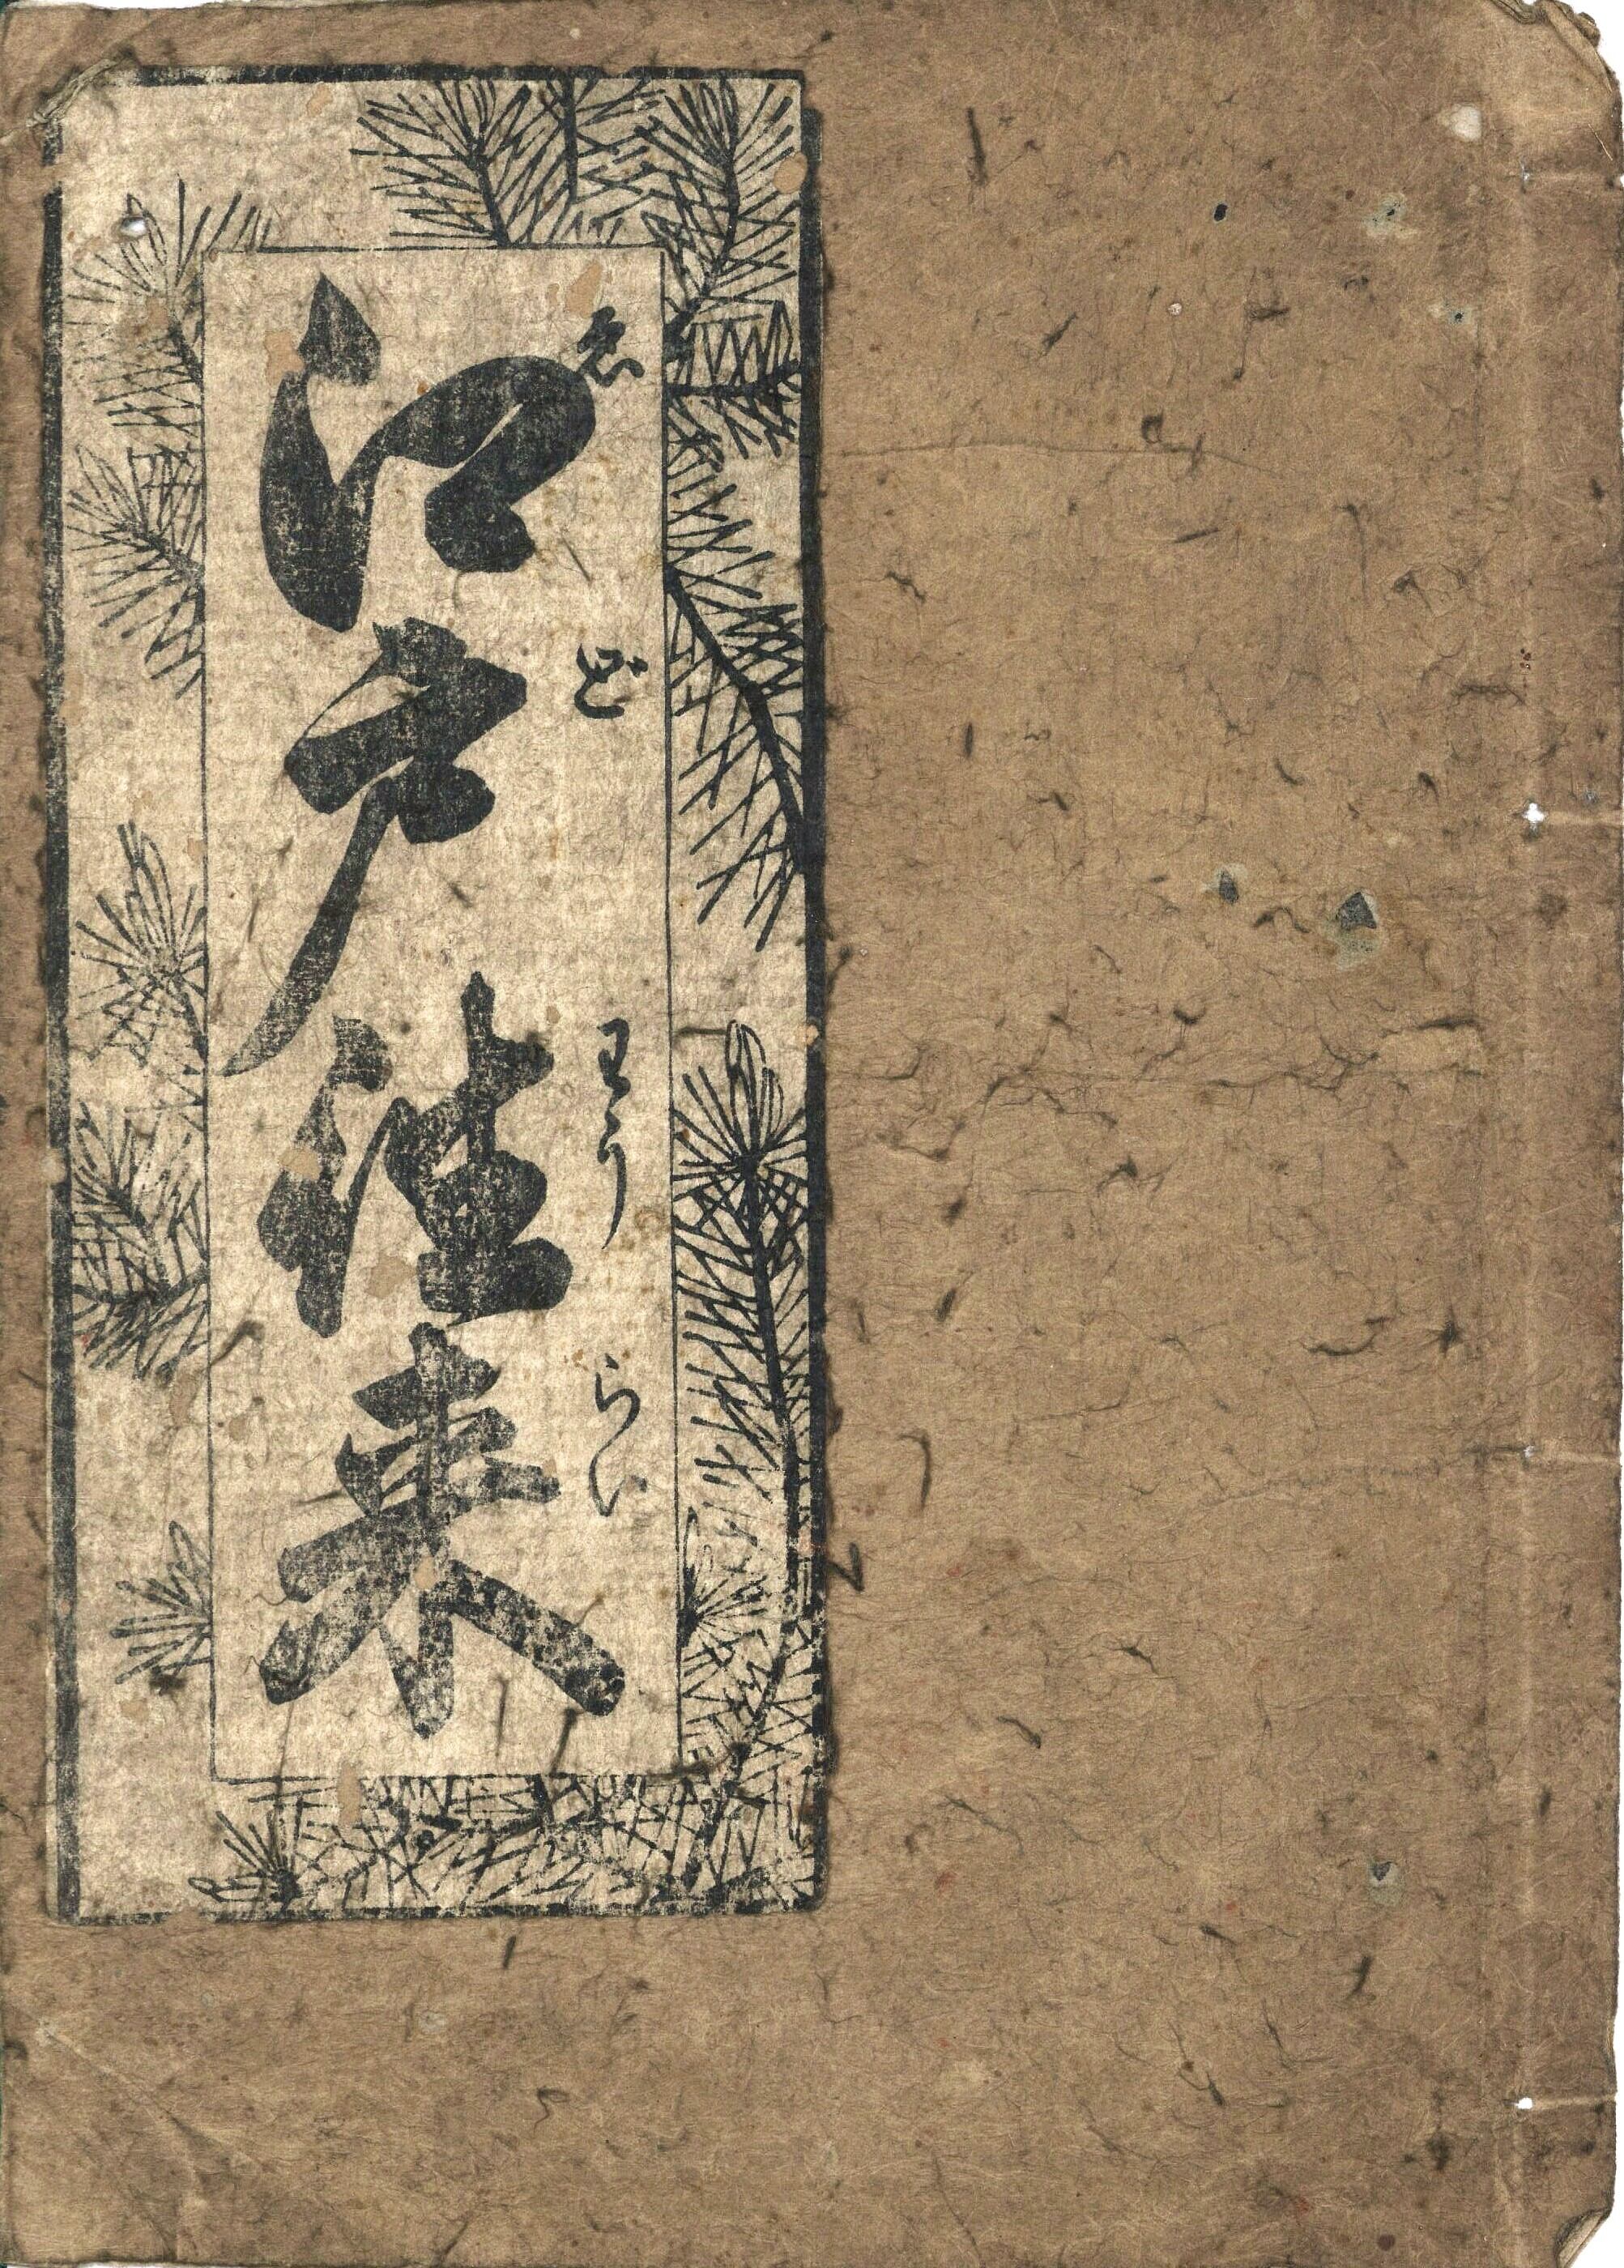 江戸往来
ゑどわうらい